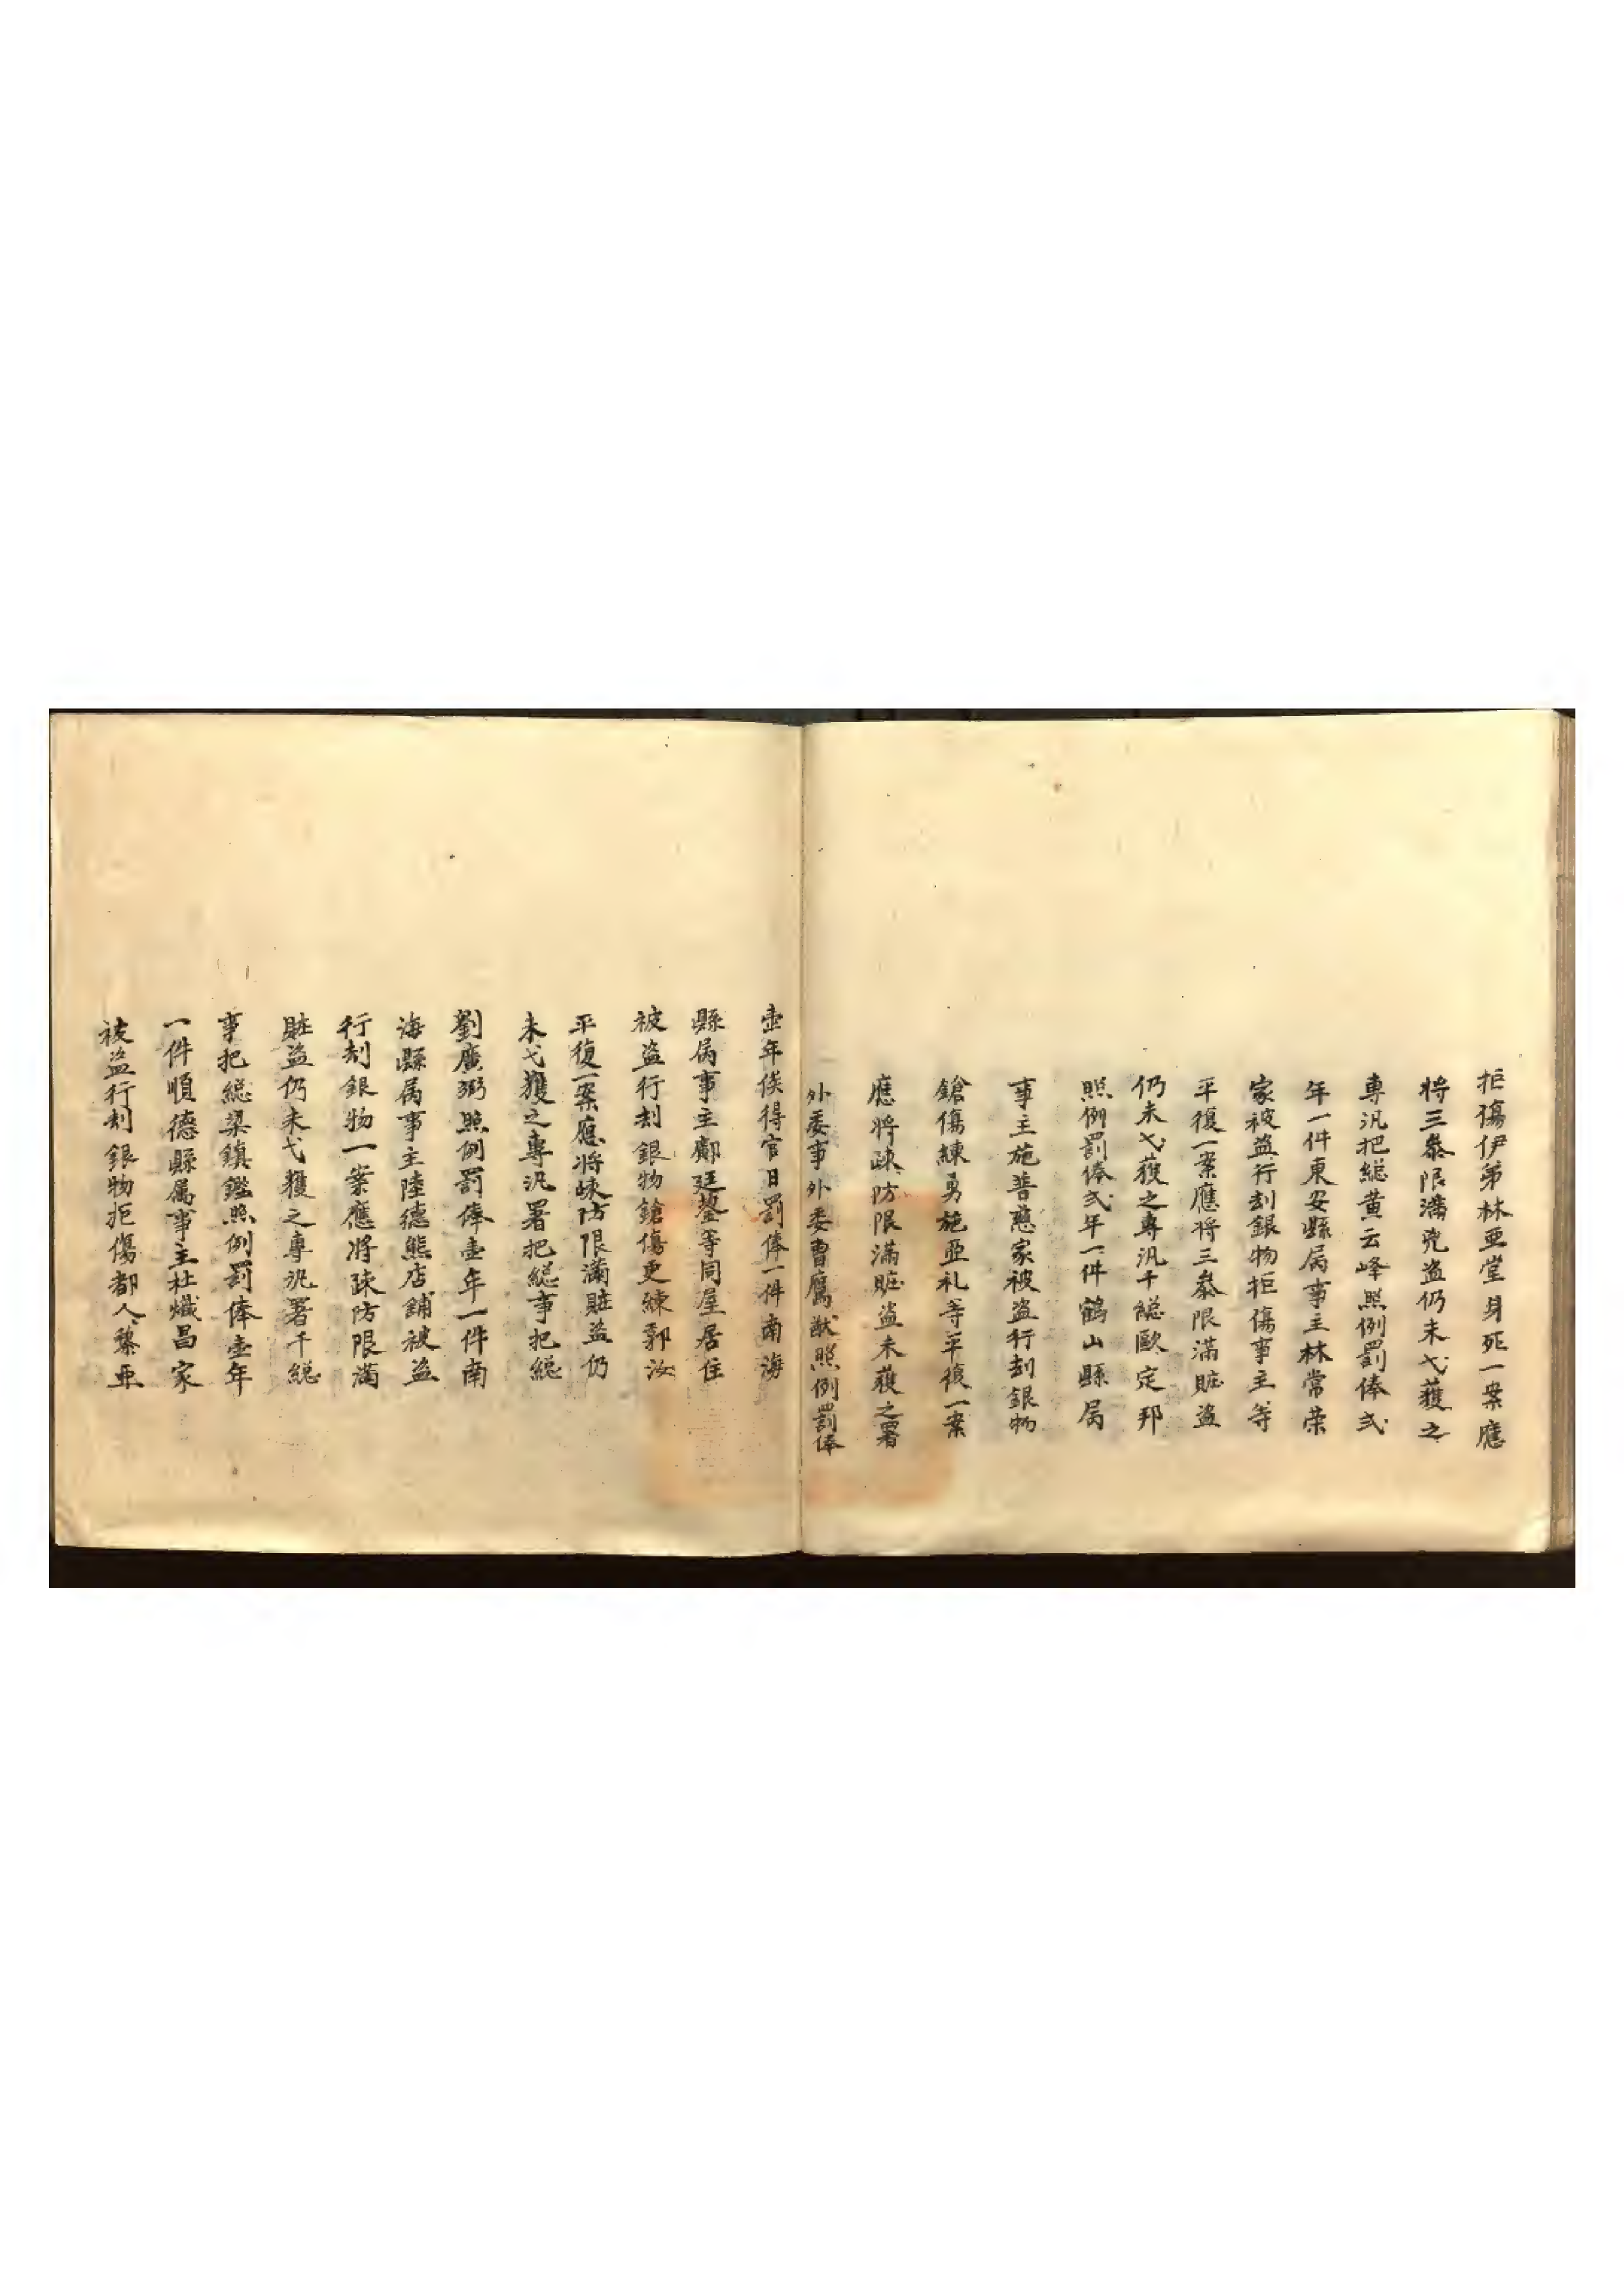 拒傷伊弟林亜堂身死一案應
将三叅限滿兇盗仍未弋獲之
專汛把総黄云峰照例罰俸弍
年一件東安縣属事主林常荣
家被盗行刦銀物拒傷事主等
平復一案應将三叅限滿賍盗
仍未弋獲之專汛千総歐定邦
照例罰俸弍年一件鶴山縣属
事主施善慈家被盗行刦銀物
鎗傷練勇施亜礼等平復一案
應将疎防限滿賍盗未獲之署
外委事外委曹鷹猷照例罰俸
壹年俟得官日罰俸一件南海
縣属事主鄺廷蓥等同屋居住
被盗行刦銀物鎗傷更練郭汝
平復一案應将疎防限滿賍盗仍
未弋獲之專汛署把総事把総
劉廣弼照例罰俸壹年一件南
海縣属事主陸德熊店舖被盗
行刦銀物一案應将疎防限滿
賍盗仍未弋獲之專汛署千総
事把総梁鎮鑑照例罰俸壹年
一件順德縣属事主杜熾昌家
被盗行刦銀物拒傷都人黎亜